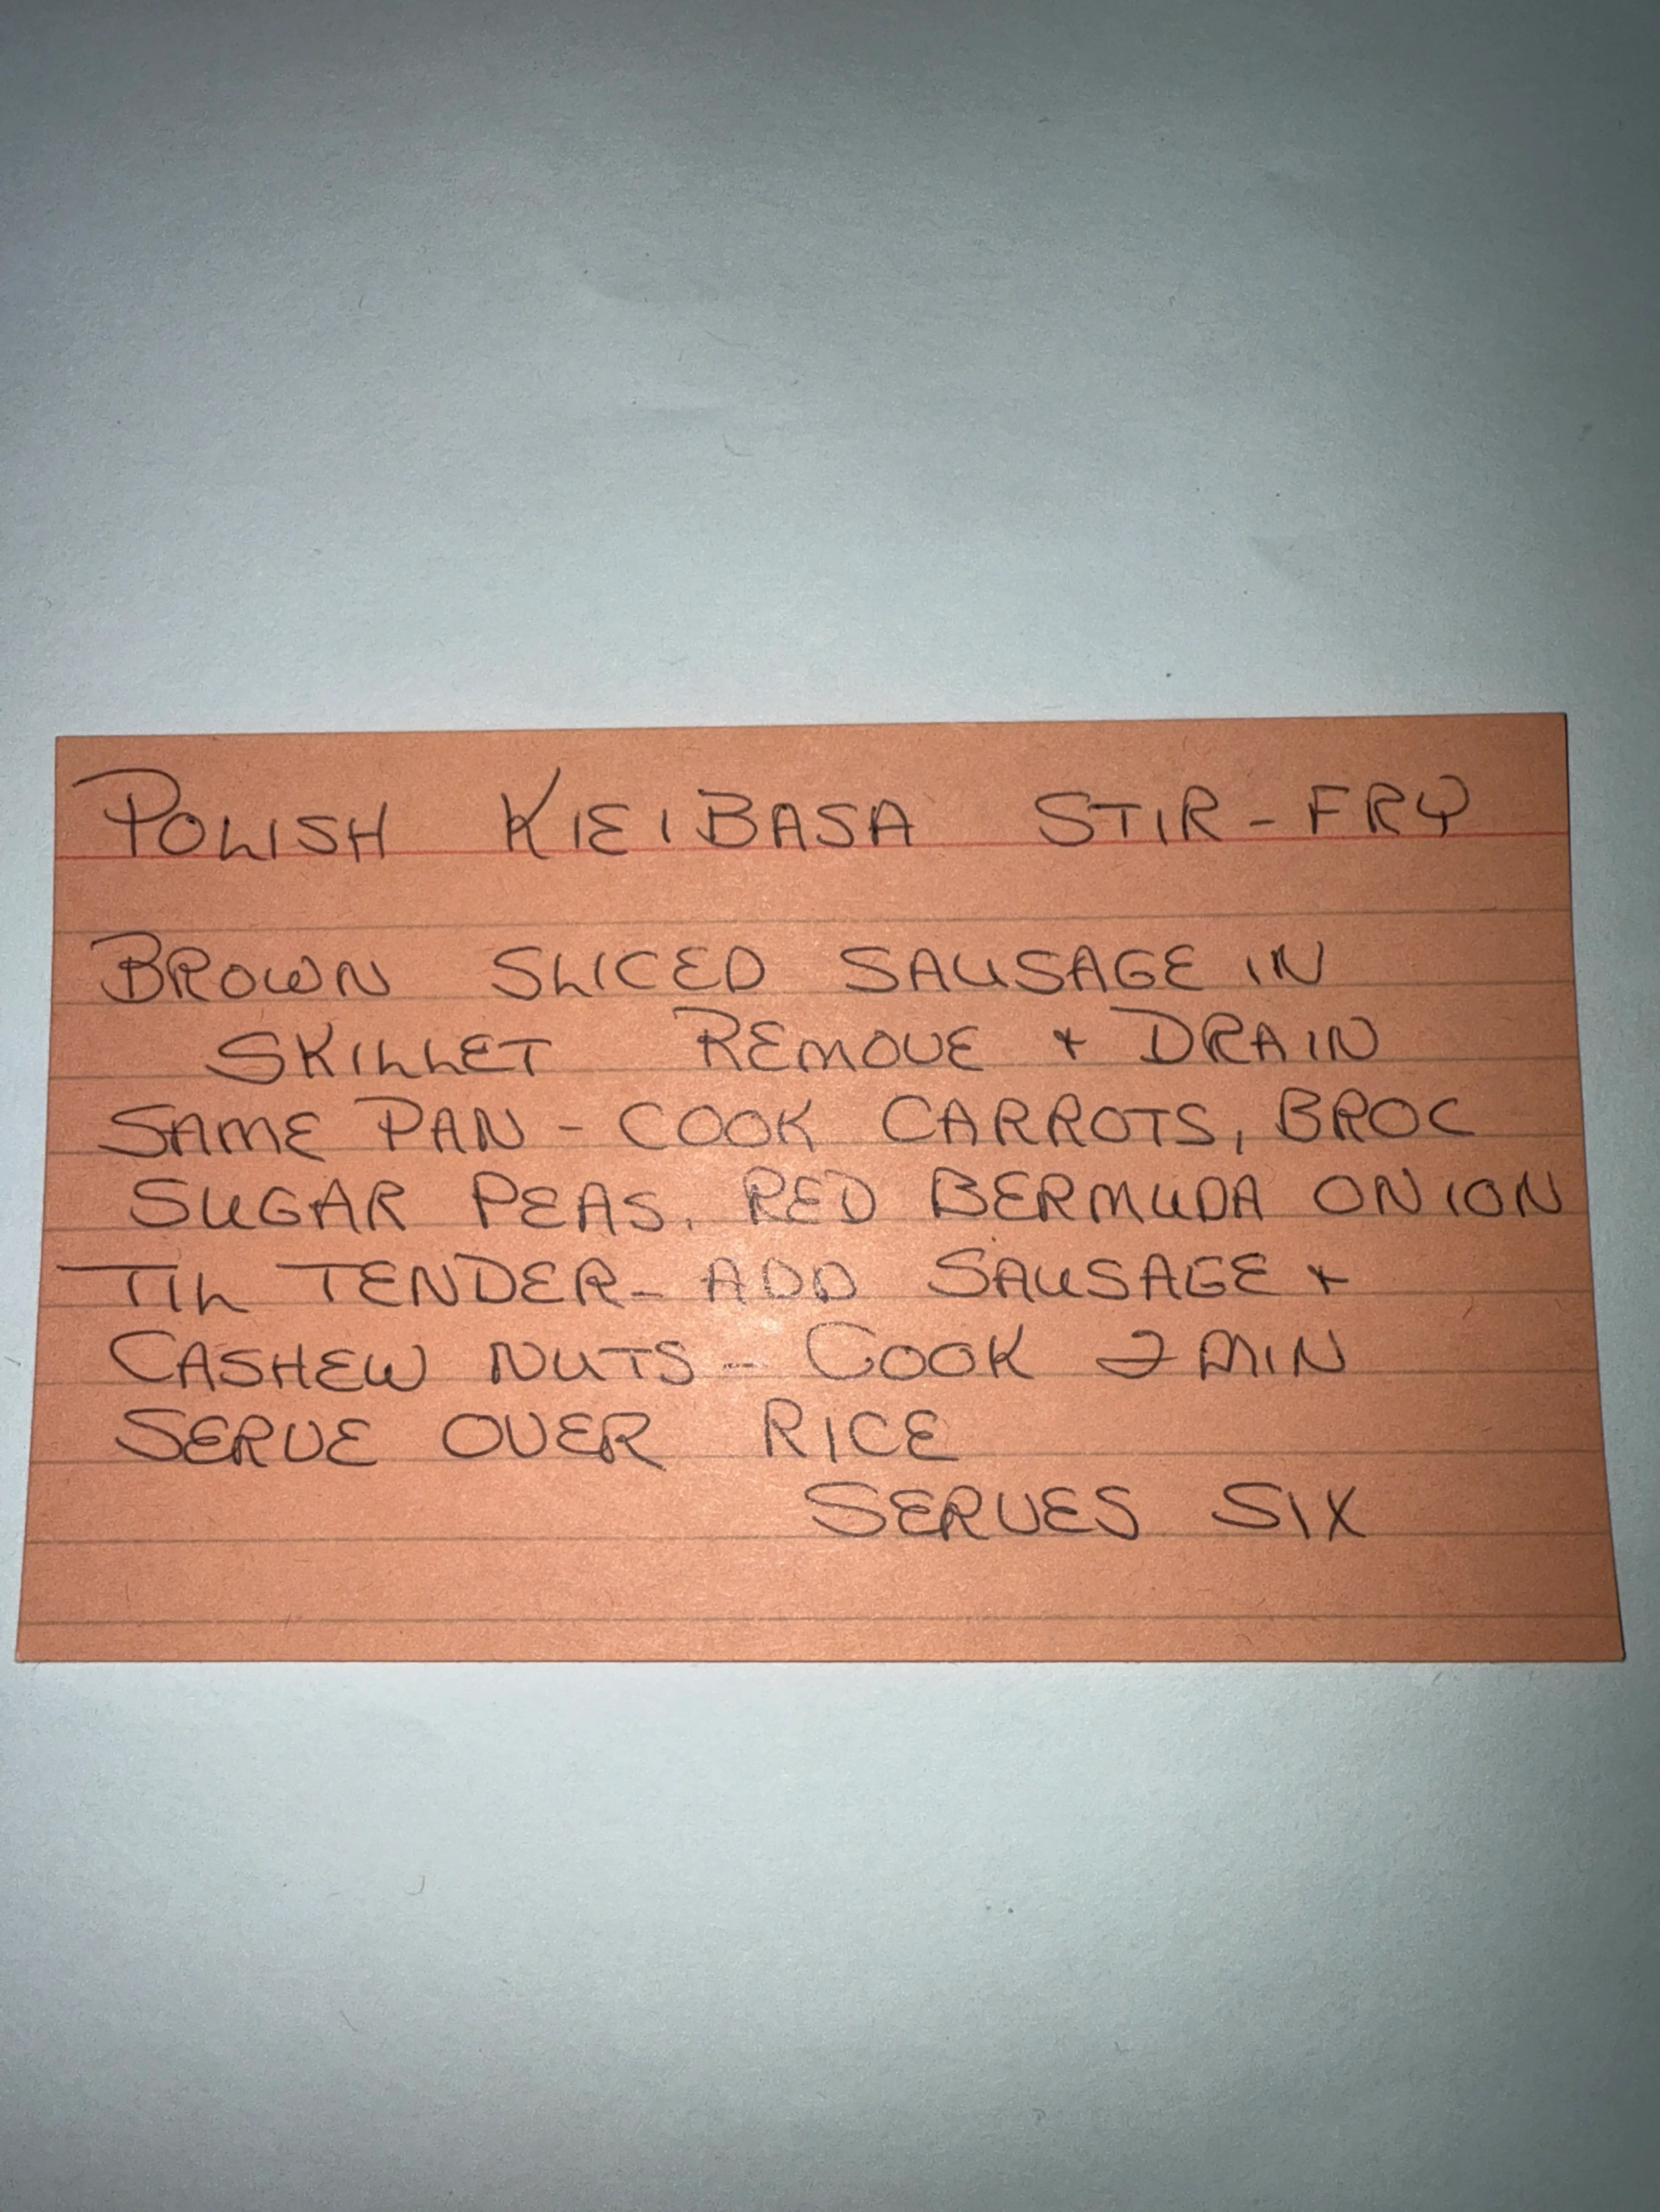 POLISH KIEIBASA STIR-FRY
BROWN SLICED SAUSAGE IN
SKILLET REMOVE + DRAIN
SAME PAN - COOK CARROTS, BROC
SUGAR PEAS, RED BERMUDA ONION
TIL TENDER - ADD SAUSAGE +
CASHEW NUTS - COOK 2 MIN
SERVE OVER RICE
SERVES SIX